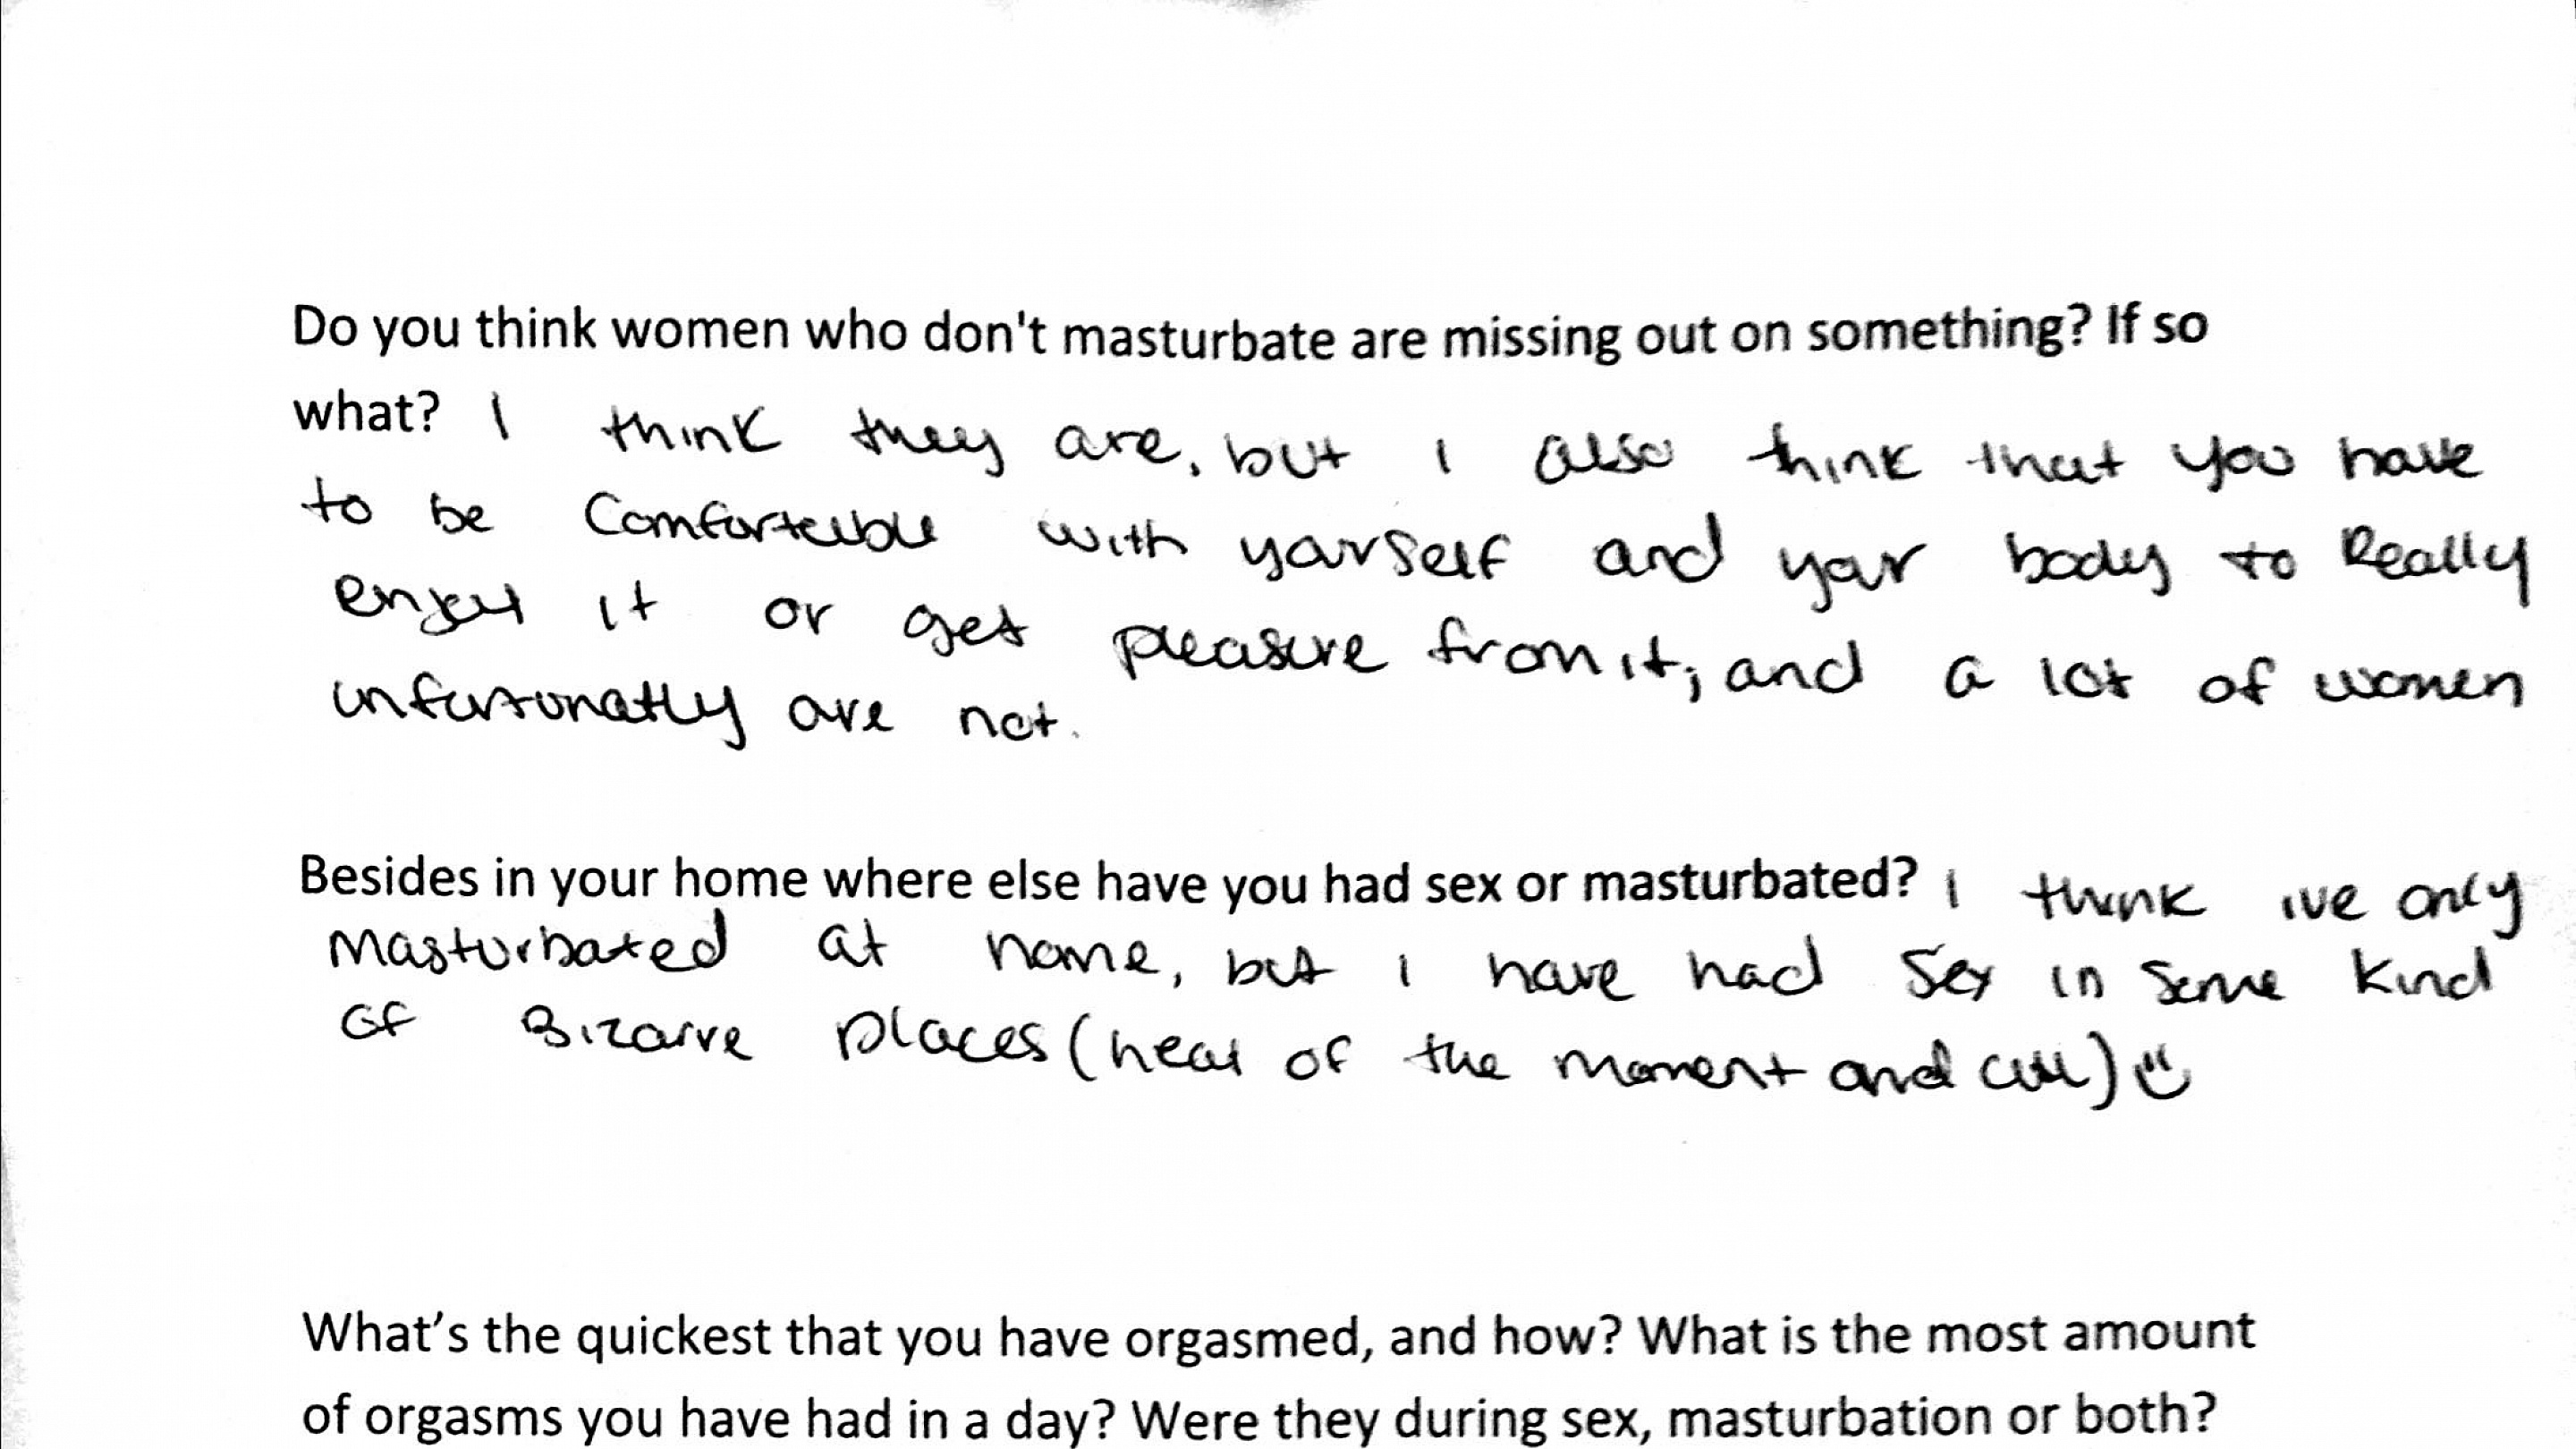 Do you think women who don't masturbate are missing out on something? If so
what? I think they are, but I also think that you have
to be Comfortable with yourself and your body to Really
enjoy it or get pleasure from it; and a lot of women
unfortunatly are not.
Besides in your home where else have you had sex or masturbated? I think ive only
Masturbated at home, but I have had Sex in some kind
of Bizarre places (heat of the moment and all) ü
What's the quickest that you have orgasmed, and how? What is the most amount
of orgasms you have had in a day? Were they during sex, masturbation or both?